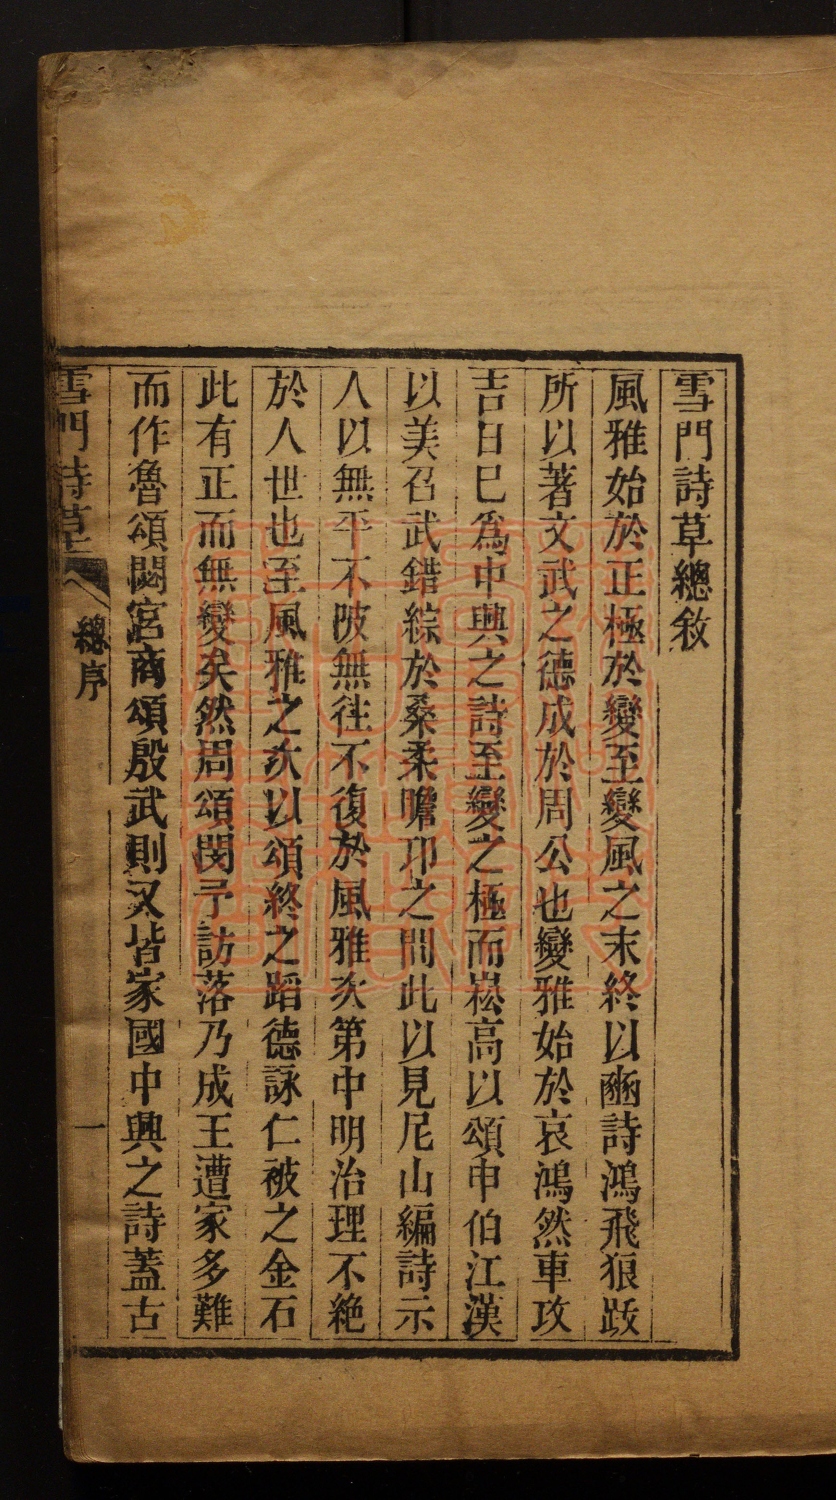 雪門詩草總敘
風雅始於正極於變至變風之末終以豳詩鴻飛狼跋
所以著文武之德成於周公也變雅始於哀鴻然車攻
吉日已爲中興之詩至變之極而崧高以頌申伯江漢
以美召武錯綜於桑柔瞻卬之間此以見尼山編詩示
人以無平不陂無往不復於風雅次第中明治理不絶
於人世也至風雅之次以頌終之蹈德詠仁被之金石
此有正而無變矣然周頌閔予訪落乃成王遭家多難
而作魯頌閟宮商頌殷武則又皆家國中興之詩蓋古
雪門詩草
總序
一